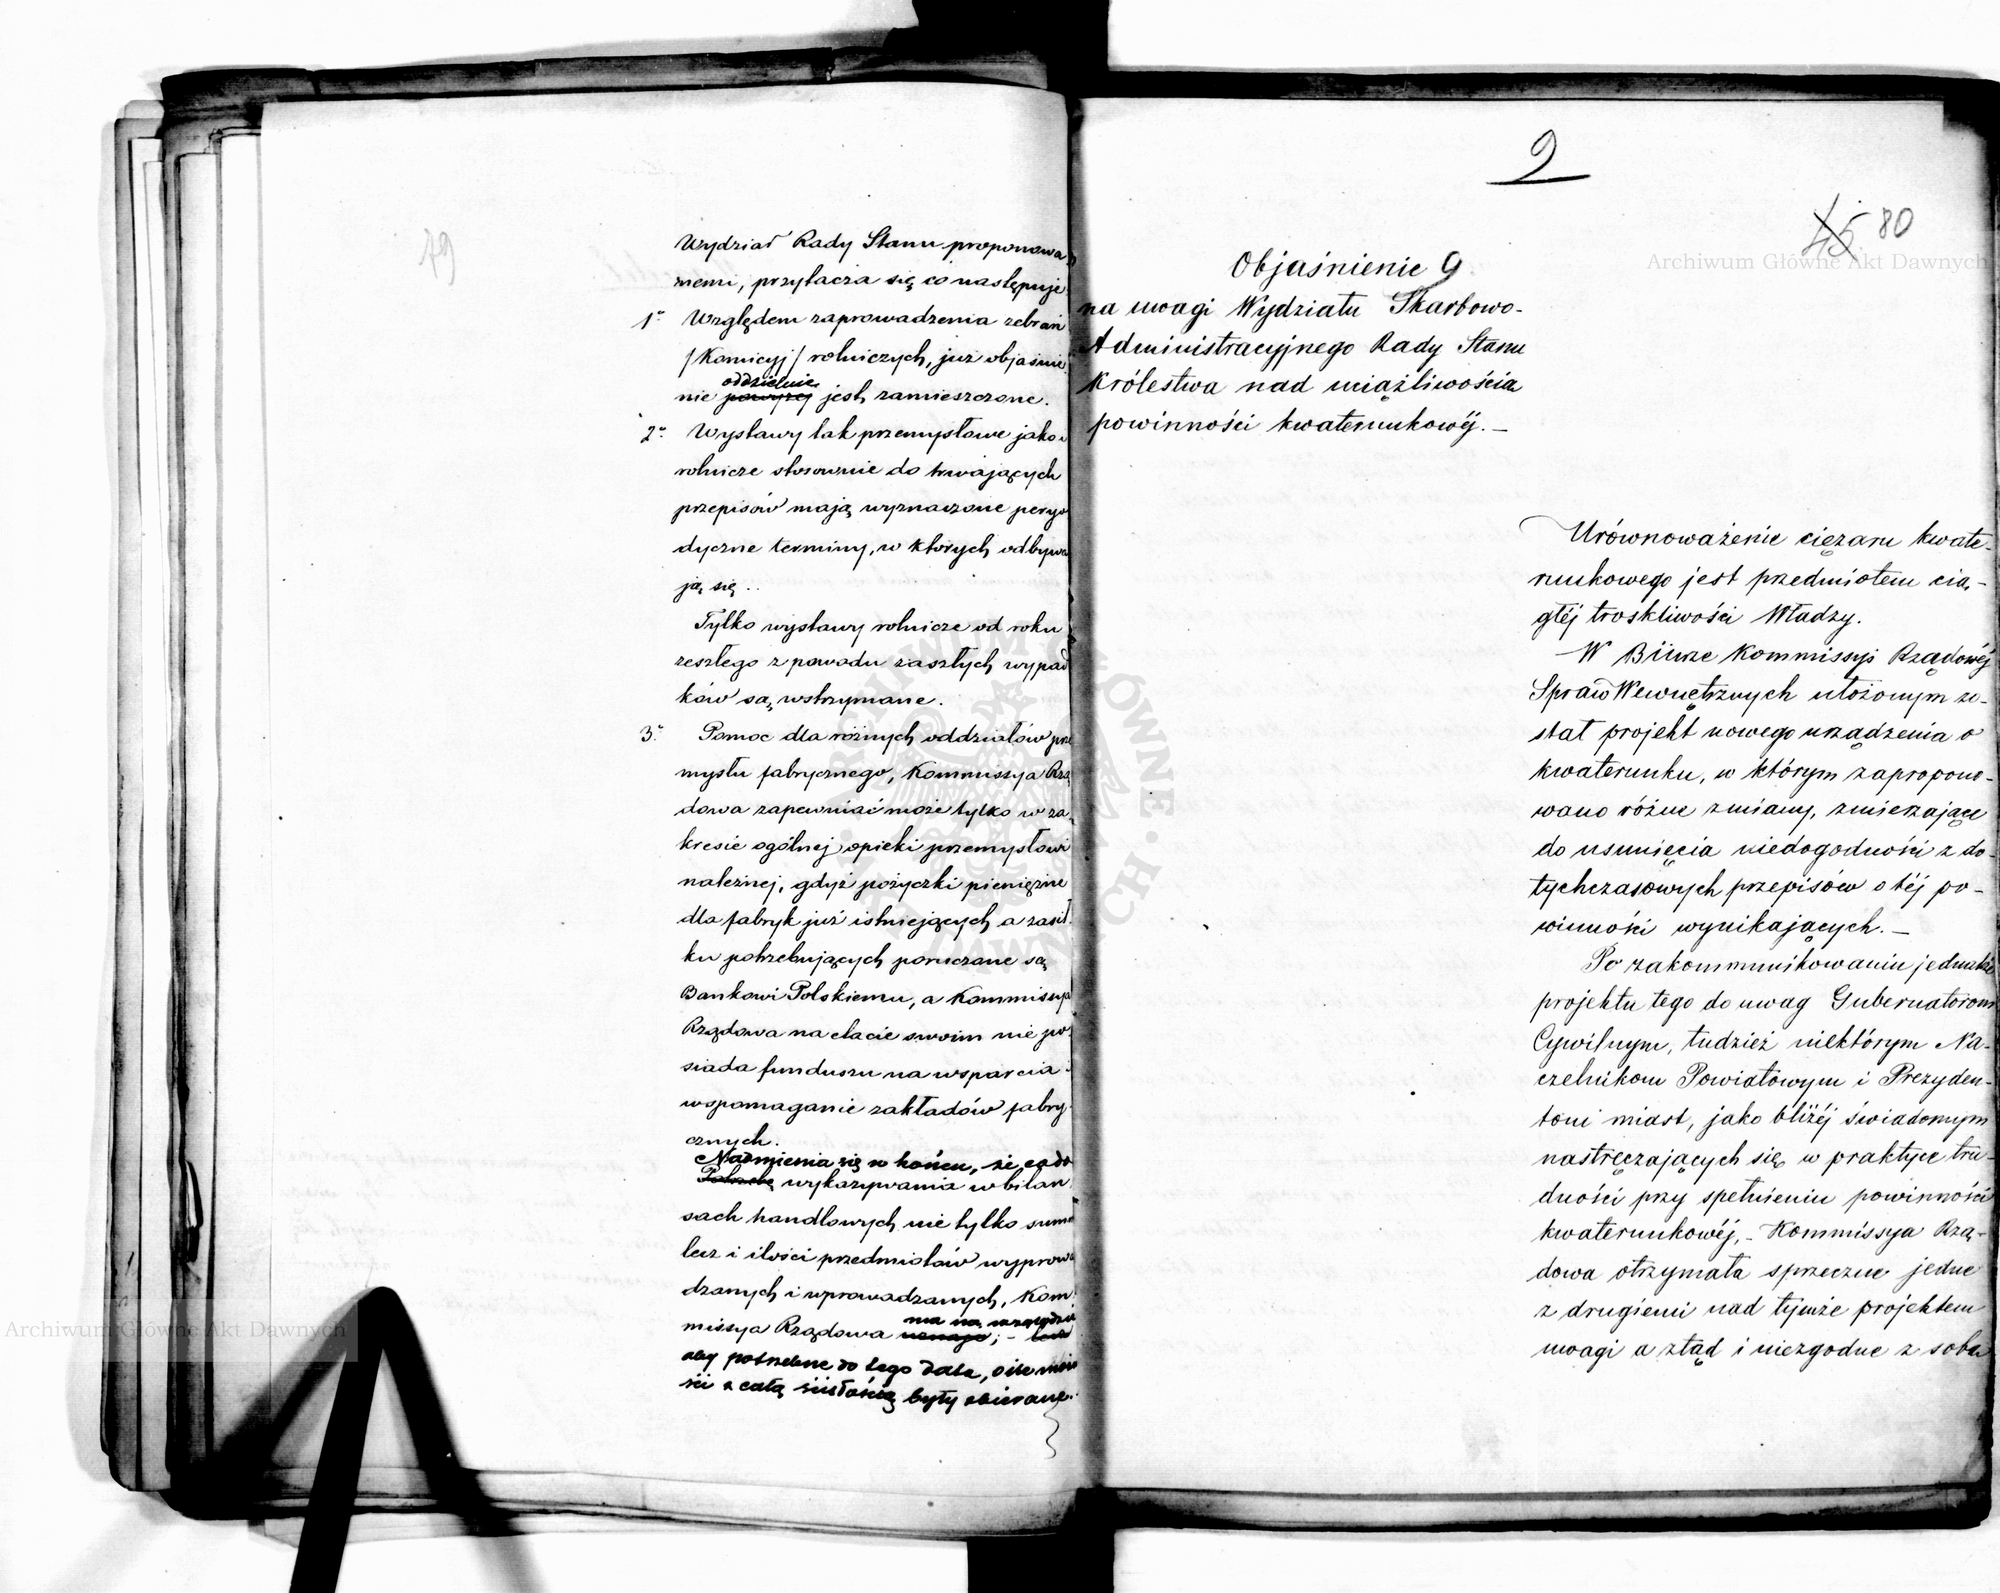 79
Wydział Rady Stanu proponowa
nemi, przytacza się co następuje
1° Względem zaprowadzenia zebrań
/Komicyj/ rolniczych, już objaśnie
oddzielnie
nie powyżej jest zamieszczone.
2° Wystawy tak przemysłowe jako
rolnicze stosownie do trwających
przepisów mają wyznaczone peryo
dyczne terminy, w których odbywa
ją się..
Tylko wystawy rolnicze od roku
zeszłego z powodu zaszłych wypad
ków są wstrzymane.
3° Pomoc dla różnych oddziałów prze
mysłu fabrycznego, Kommissya Rzą
dowa zapewniać może tylko w za
kresie ogólnej opieki przemysłowi
należnej, gdyż pożyczki pieniężne
dla fabryk już istniejących a zasił
ku potrzebujących poruczane są
Bankowi Polskiemu, a Kommissya
Rządowa na etacie swoim nie po
siada funduszu na wsparcia i
wspomaganie zakładów fabry
cznych.
Nadmienia się w końcu, że co do
Potrzebę wykazywania w bilan
sach handlowych nie tylko summ
lecz i ilości przedmiotów wyprowa
dzanych i wprowadzanych, Kom
missya Rządowa uznaje; –
aby potrzebne do tego data, o ile możno
ści z całą ścisłością były zbierane.
9
45 80
Objaśnienie 9
na uwagi Wydziału Skarbowo-
Administracyjnego Rady Stanu
Królestwa nad uciążliwością
powinności kwaterunkowéj. –
Urównoważenie ciężaru kwate-
runkowego jest przedmiotem cią-
głéj troskliwości Władzy.
W Biurze Kommissyi Rządowéj
Spraw Wewnętrznych ułożonym zo-
stał projekt nowego urządzenia o
kwaterunku, w którym zapropono-
wano różne zmiany, zmierzające
do usunięcia niedogodności z do-
tychczasowych przepisów o téj po-
winności wynikających. –
Po zakommunikowaniu jednakże
projektu tego do uwag Gubernatorom
Cywilnym, tudzież niektórym Na-
czelnikom Powiatowym i Prezyden-
tom miast, jako bliżéj świadomym
nastręczających się w praktyce tru-
dności przy spełnieniu powinności
kwaterunkowéj, – Kommissya Rzą-
dowa otrzymała sprzeczne jedne
z drugiemi nad tymże projektem
uwagi a ztąd i niezgodne z sobą
Archiwum Główne Akt Dawnych
Archiwum Główne Akt Dawnych